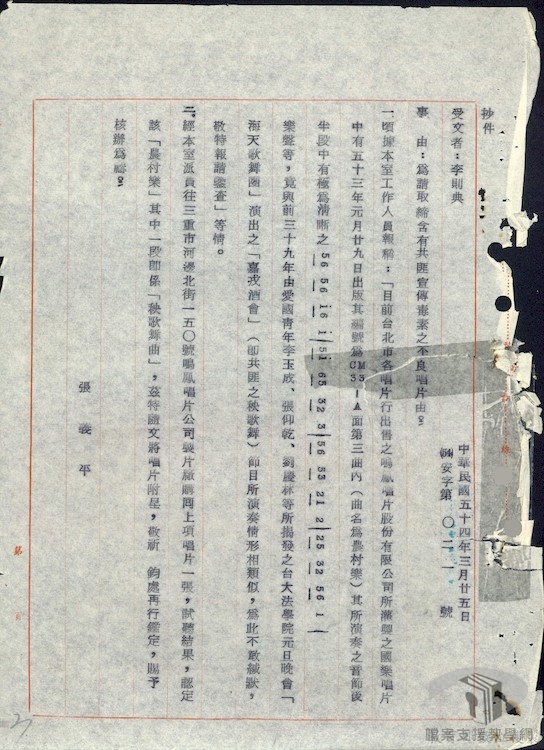 抄件
受文者：李則典
中華民國五十四年三月廿五日
安字第〇二一一號
事　由：為請取締含有共匪宣傳毒素之不良唱片由。
一頃據本室工作人員報稱：「目前台北市各唱片行出售之鳴鳳唱片股份有限公司所灌製之國樂唱片
中有五十三年元月廿九日出版其編號為CM33—▲面第三曲內（曲名為農村樂）其所演奏之音節後
半段中有極為清晰之 56 56 16 1 | 51 65 32 3 | 56 53 21 2 | 25 32 56 1 |
樂聲等，竟與前三十九年由愛國青年李玉成、張仰乾、劉慶林等所揭發之台大法學院元旦晚會「
海天歌舞團」演出之「嘉戎酒會」（即共匪之秧歌舞）節目所演奏情形相類似，為此不敢緘默，
敬特報請鑒查」等情。
二經本室派員往三重市河邊北街一五〇號鳴鳳唱片公司製片廠購同上項唱片一張，試聽結果，認定
該「農村樂」其中一段即係「秧歌舞曲」，茲特隨文將唱片附呈，敬祈　鈞處再行鑑定，賜予
核辦為禱。
張義平
第
檔案支援教學網